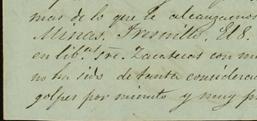 mas de lo que le alcanzamos
Minas. Fresnillo. El 8.
en lib.as sre. Zacatecas con m
no ha sido de tanta consideraci
golpes por minuto y muy p